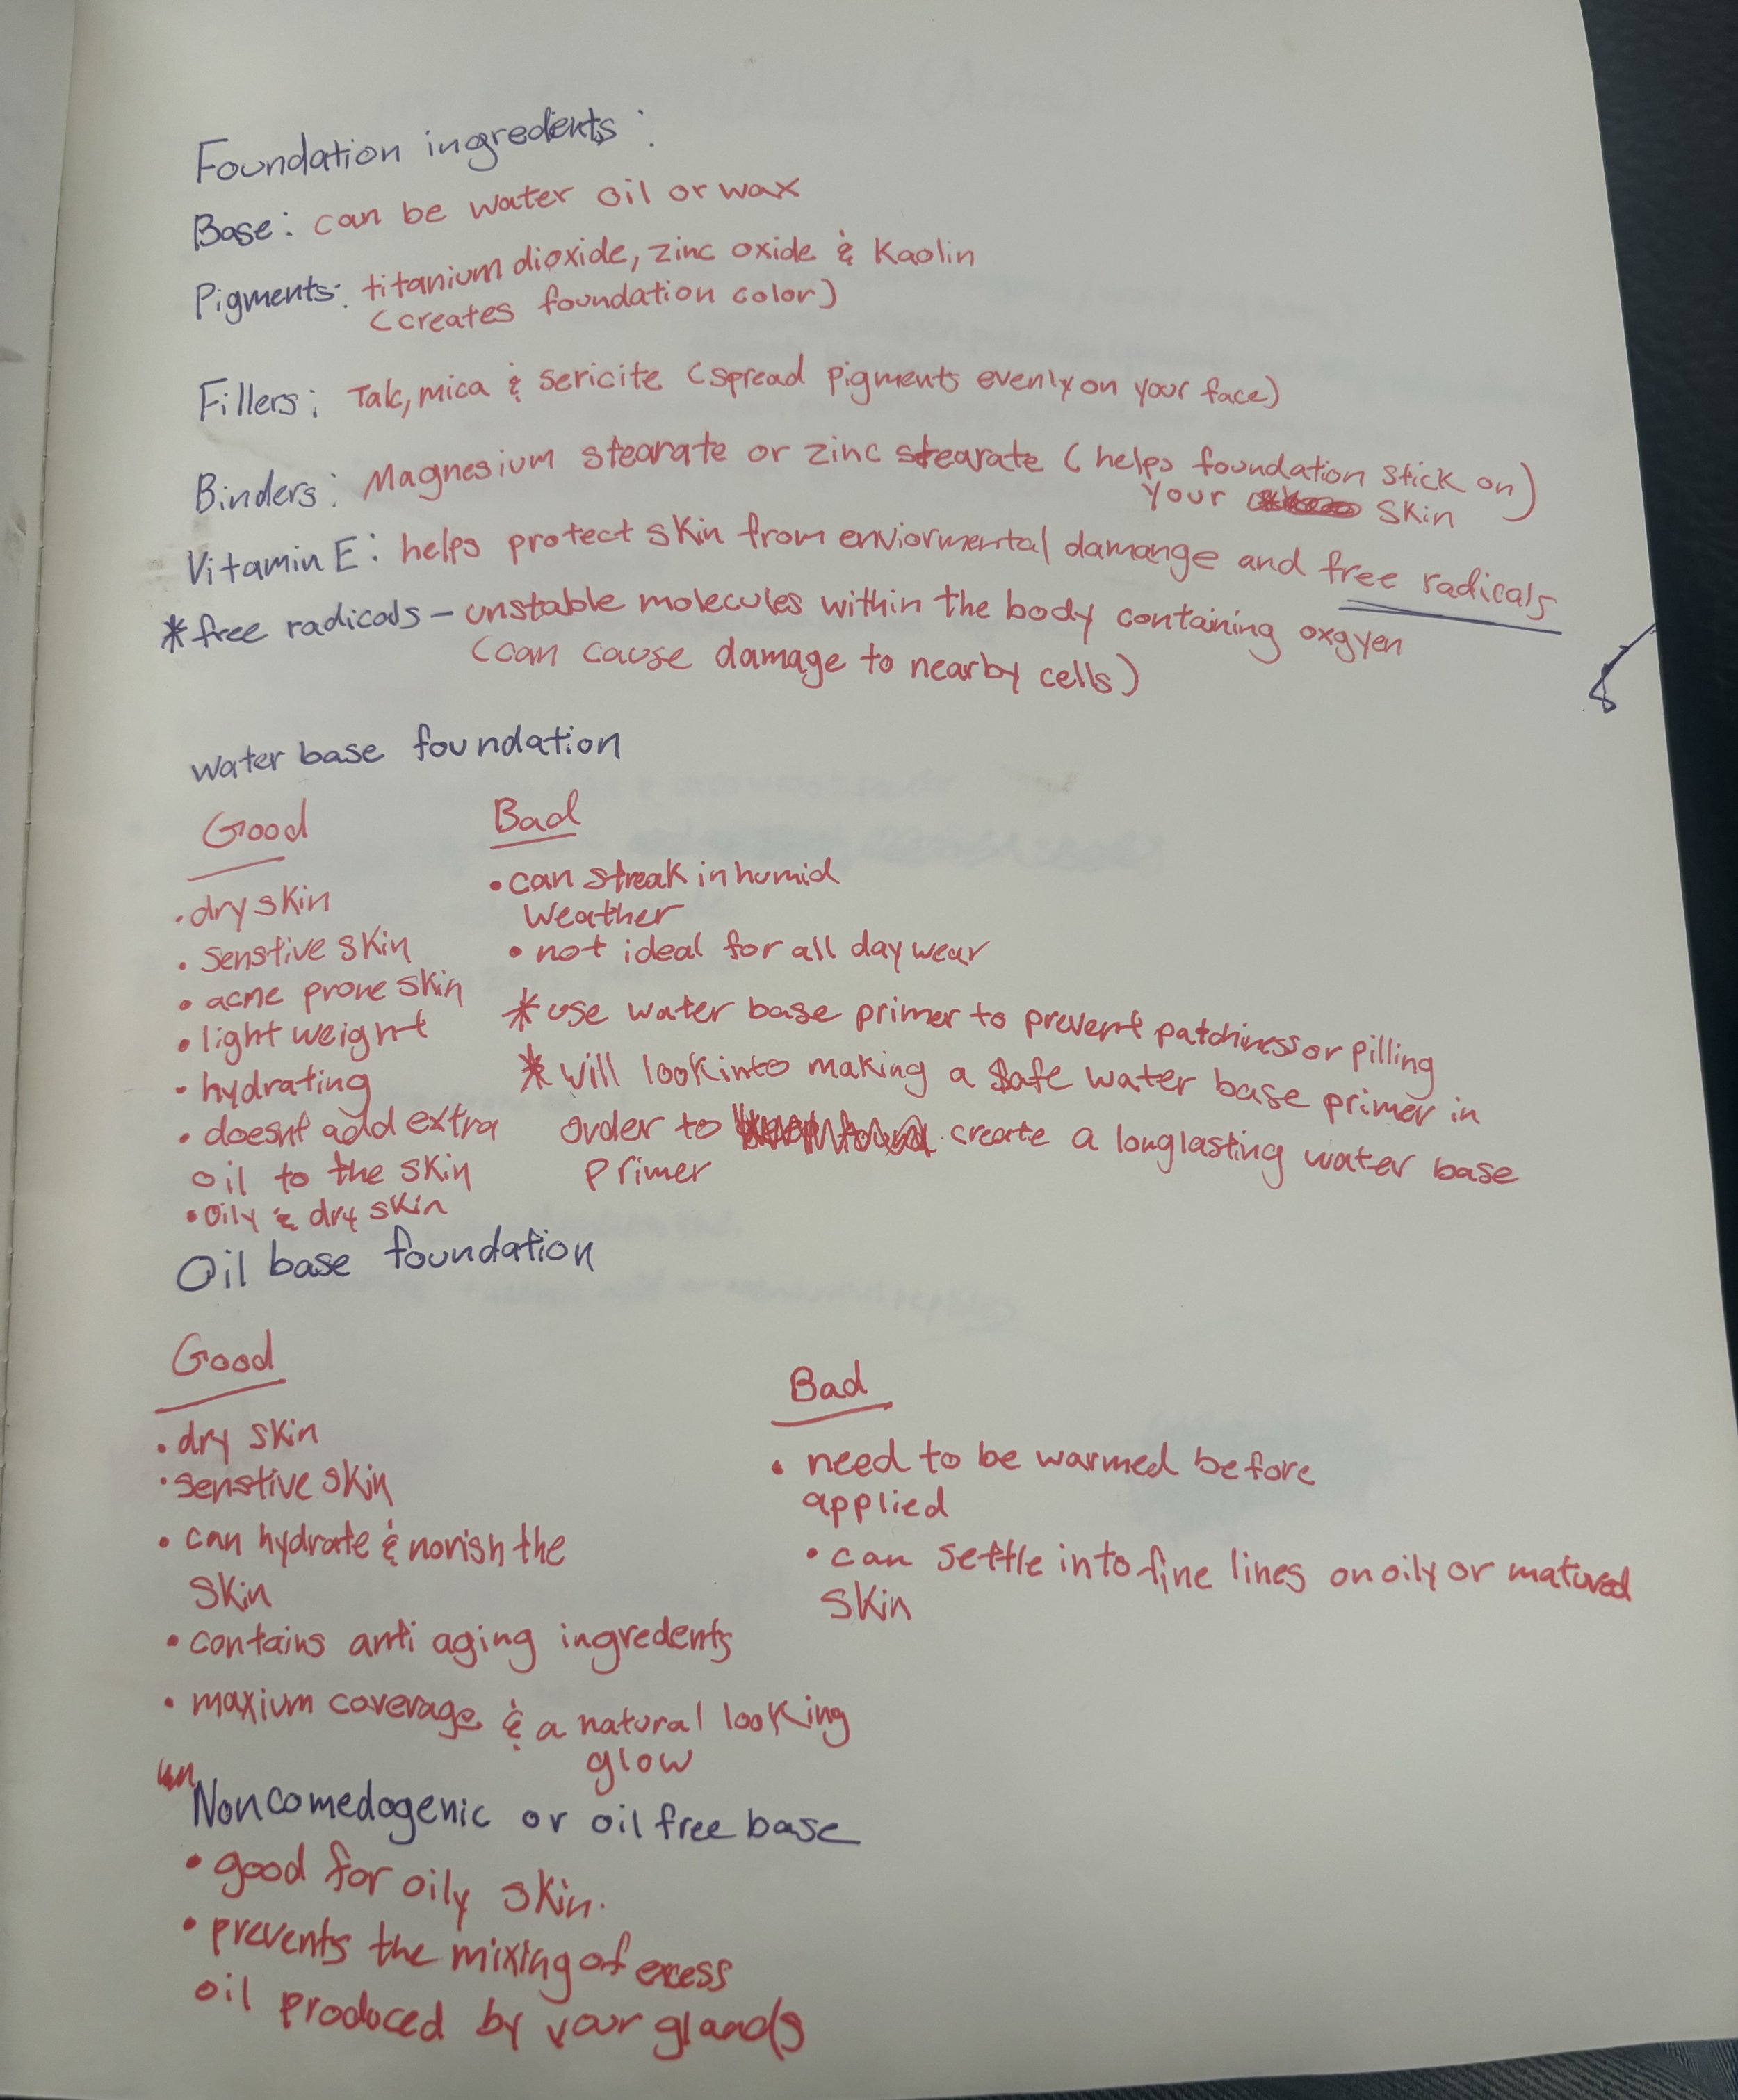 Foundation ingredients:
Base: can be water oil or wax
Pigments: titanium dioxide, zinc oxide & Kaolin
(creates foundation color)
Fillers: Talc, mica & sericite (spread pigments evenly on your face)
Binders: Magnesium stearate or zinc stearate (helps foundation stick on)
your skin
Vitamin E: helps protect skin from enviormental damange and free radicals
*free radicals - unstable molecules within the body containing oxgyen
(can cause damage to nearby cells)
water base foundation
Good
• dry skin
• senstive skin
• acne prone skin
• light weight
• hydrating
• doesnt add extra
oil to the skin
• oily & dry skin
Bad
• can streak in humid
weather
• not ideal for all day wear
* use water base primer to prevent patchiness or pilling
* will look into making a safe water base primer in
order to create a longlasting water base
primer
Oil base foundation
Good
• dry skin
• senstive skin
• can hydrate & norish the
skin
• contains anti aging ingredents
• maxium coverage & a natural looking
glow
Bad
• need to be warmed before
applied
• can settle into fine lines on oily or matured
skin
Noncomedogenic or oil free base
• good for oily skin.
• prevents the mixing of excess
oil produced by your glands